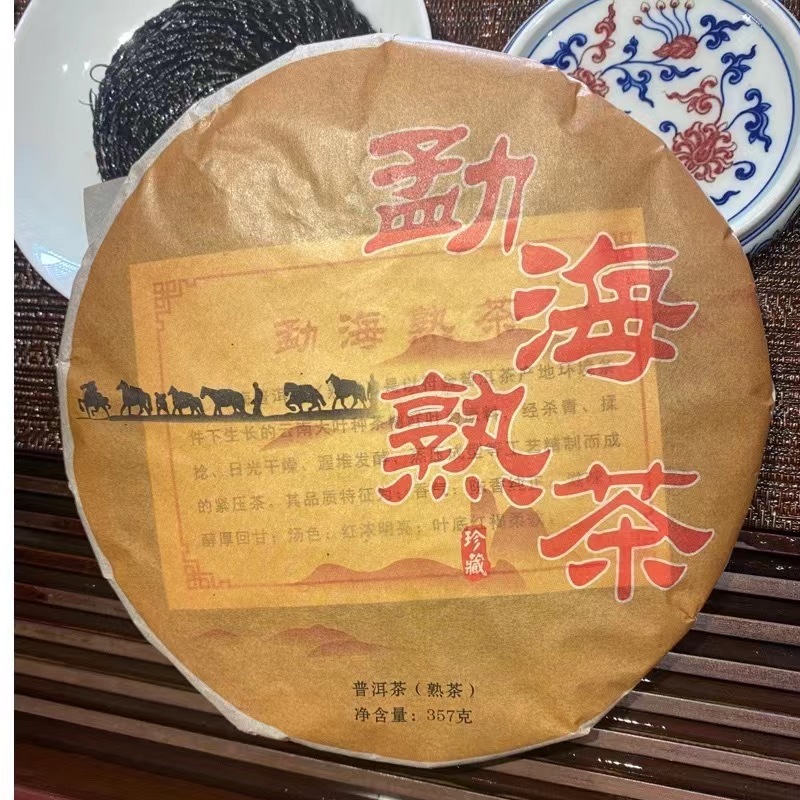 勐海熟茶
珍藏
勐海熟茶
是以
茶产地环境条
件下生长的云南大叶种茶
经杀青、揉
捻、日光干燥、渥堆发酵、
精制而成
的紧压茶。其品质特征
香气:
醇厚回甘;汤色:红浓明亮;叶底红褐
普洱茶(熟茶)
净含量:357克